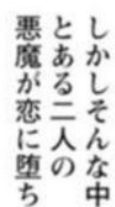 しかしそんな中
とある二人の
悪魔が恋に堕ち